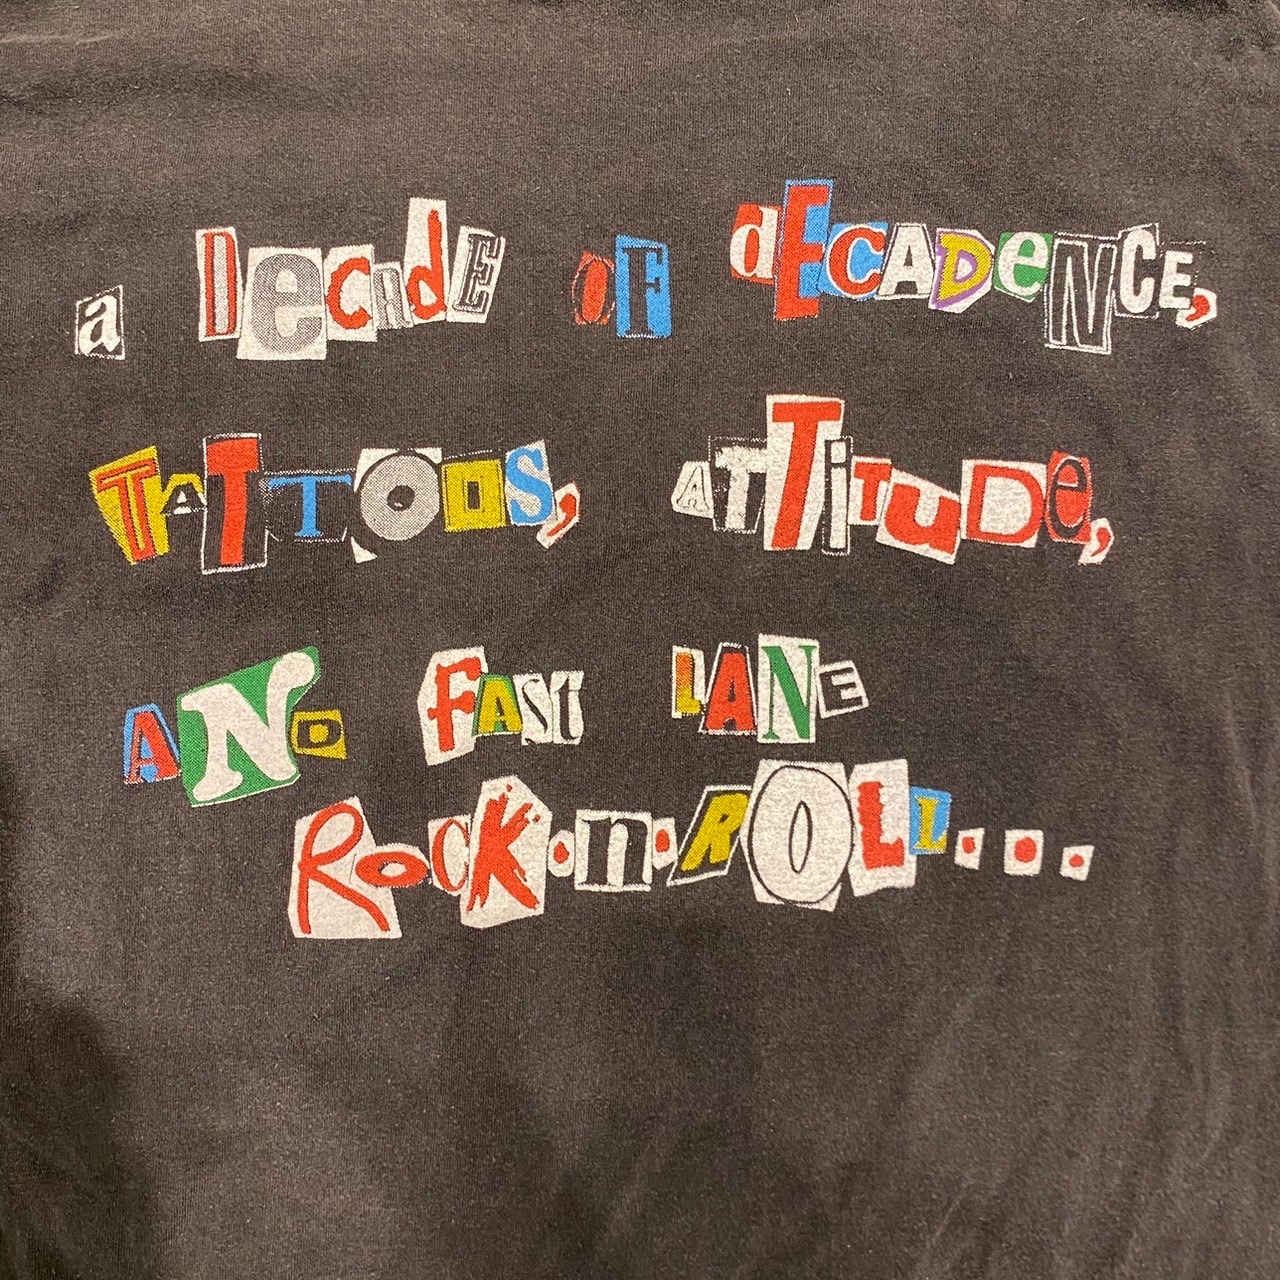 a DecadE oF dECADeNCE,
TATTOOS, ATTiTuDe,
AND FAST LANE
RoCK·n·ROLL...